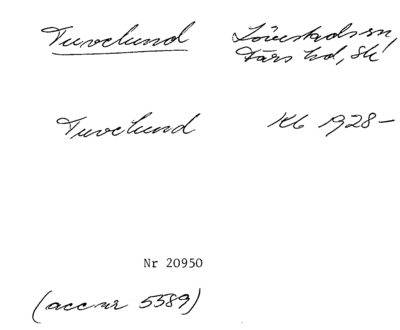 Tuvelund Lövestads sn,
Färs hd, Sk
Tuvelund Kb 1928-
Nr 20950
(acc nr 5589)